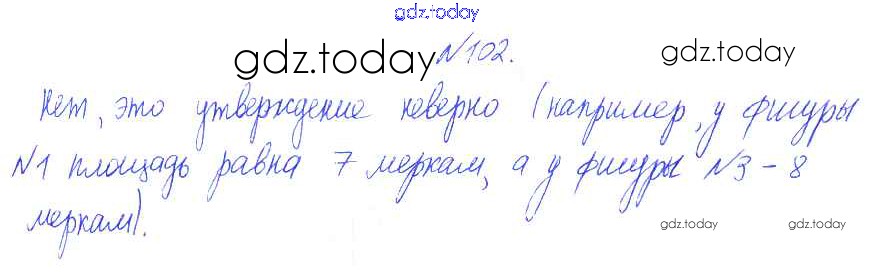 gdz.today
gdz.today №102. gdz.today
Нет, это утверждение неверно (например, у фигуры
№1 площадь равна 7 меркам, а у фигуры №3 – 8
меркам).
gdz.today
gdz.today gdz.today